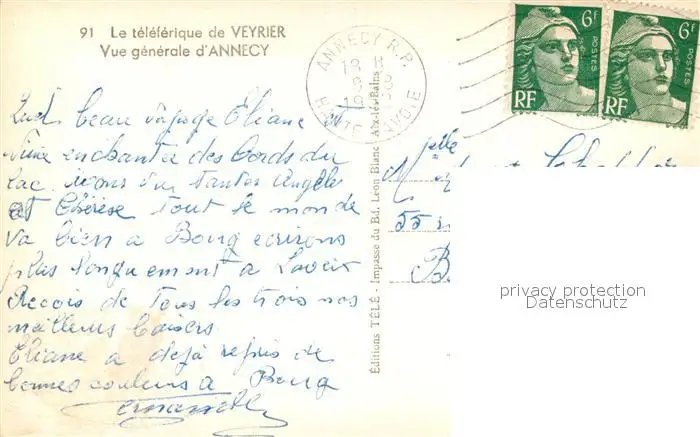 91 Le téléférique de VEYRIER
Vue générale d'ANNECY
ANNECY R.P.
HAUTE SAVOIE
6F
POSTES
RF
6F
POSTES
RF
Quel beau voyage Éliane
enchantée des bords du
lac. avons vu tantes Angèle
et Thérèse tout le monde
va bien à Bourg écrirons
plus longuement à
Reçois de tous les trois nos
meilleurs baisers
Éliane a déjà repris de
bonnes couleurs à Bourg
Éditions TÉLÉ : Impasse du Bd. Léon Blanc Aix-les-Bains
Melle
55
B
privacy protection
Datenschutz